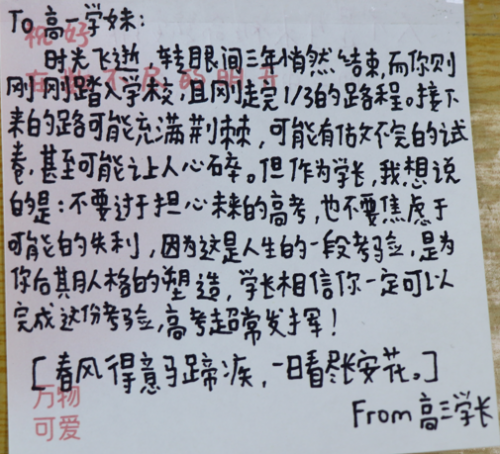 To 高一学妹:
祝好
时光飞逝,转眼间三年悄然结束,而你则
刚刚踏入学校,且刚走完1/3的路程。接下
来的路可能充满荆棘,可能有估文不完的试
卷,甚至可能让人心碎。但作为学长,我想说
的是:不要过于担心未来的高考,也不要焦虑于
可能的失利,因为这是人生的一段考验,是为
你后期人格的塑造,学长相信你一定可以
完成这份考验,高考超常发挥!
[春风得意马蹄疾,一日看尽长安花。]
万物
可爱
From 高三学长